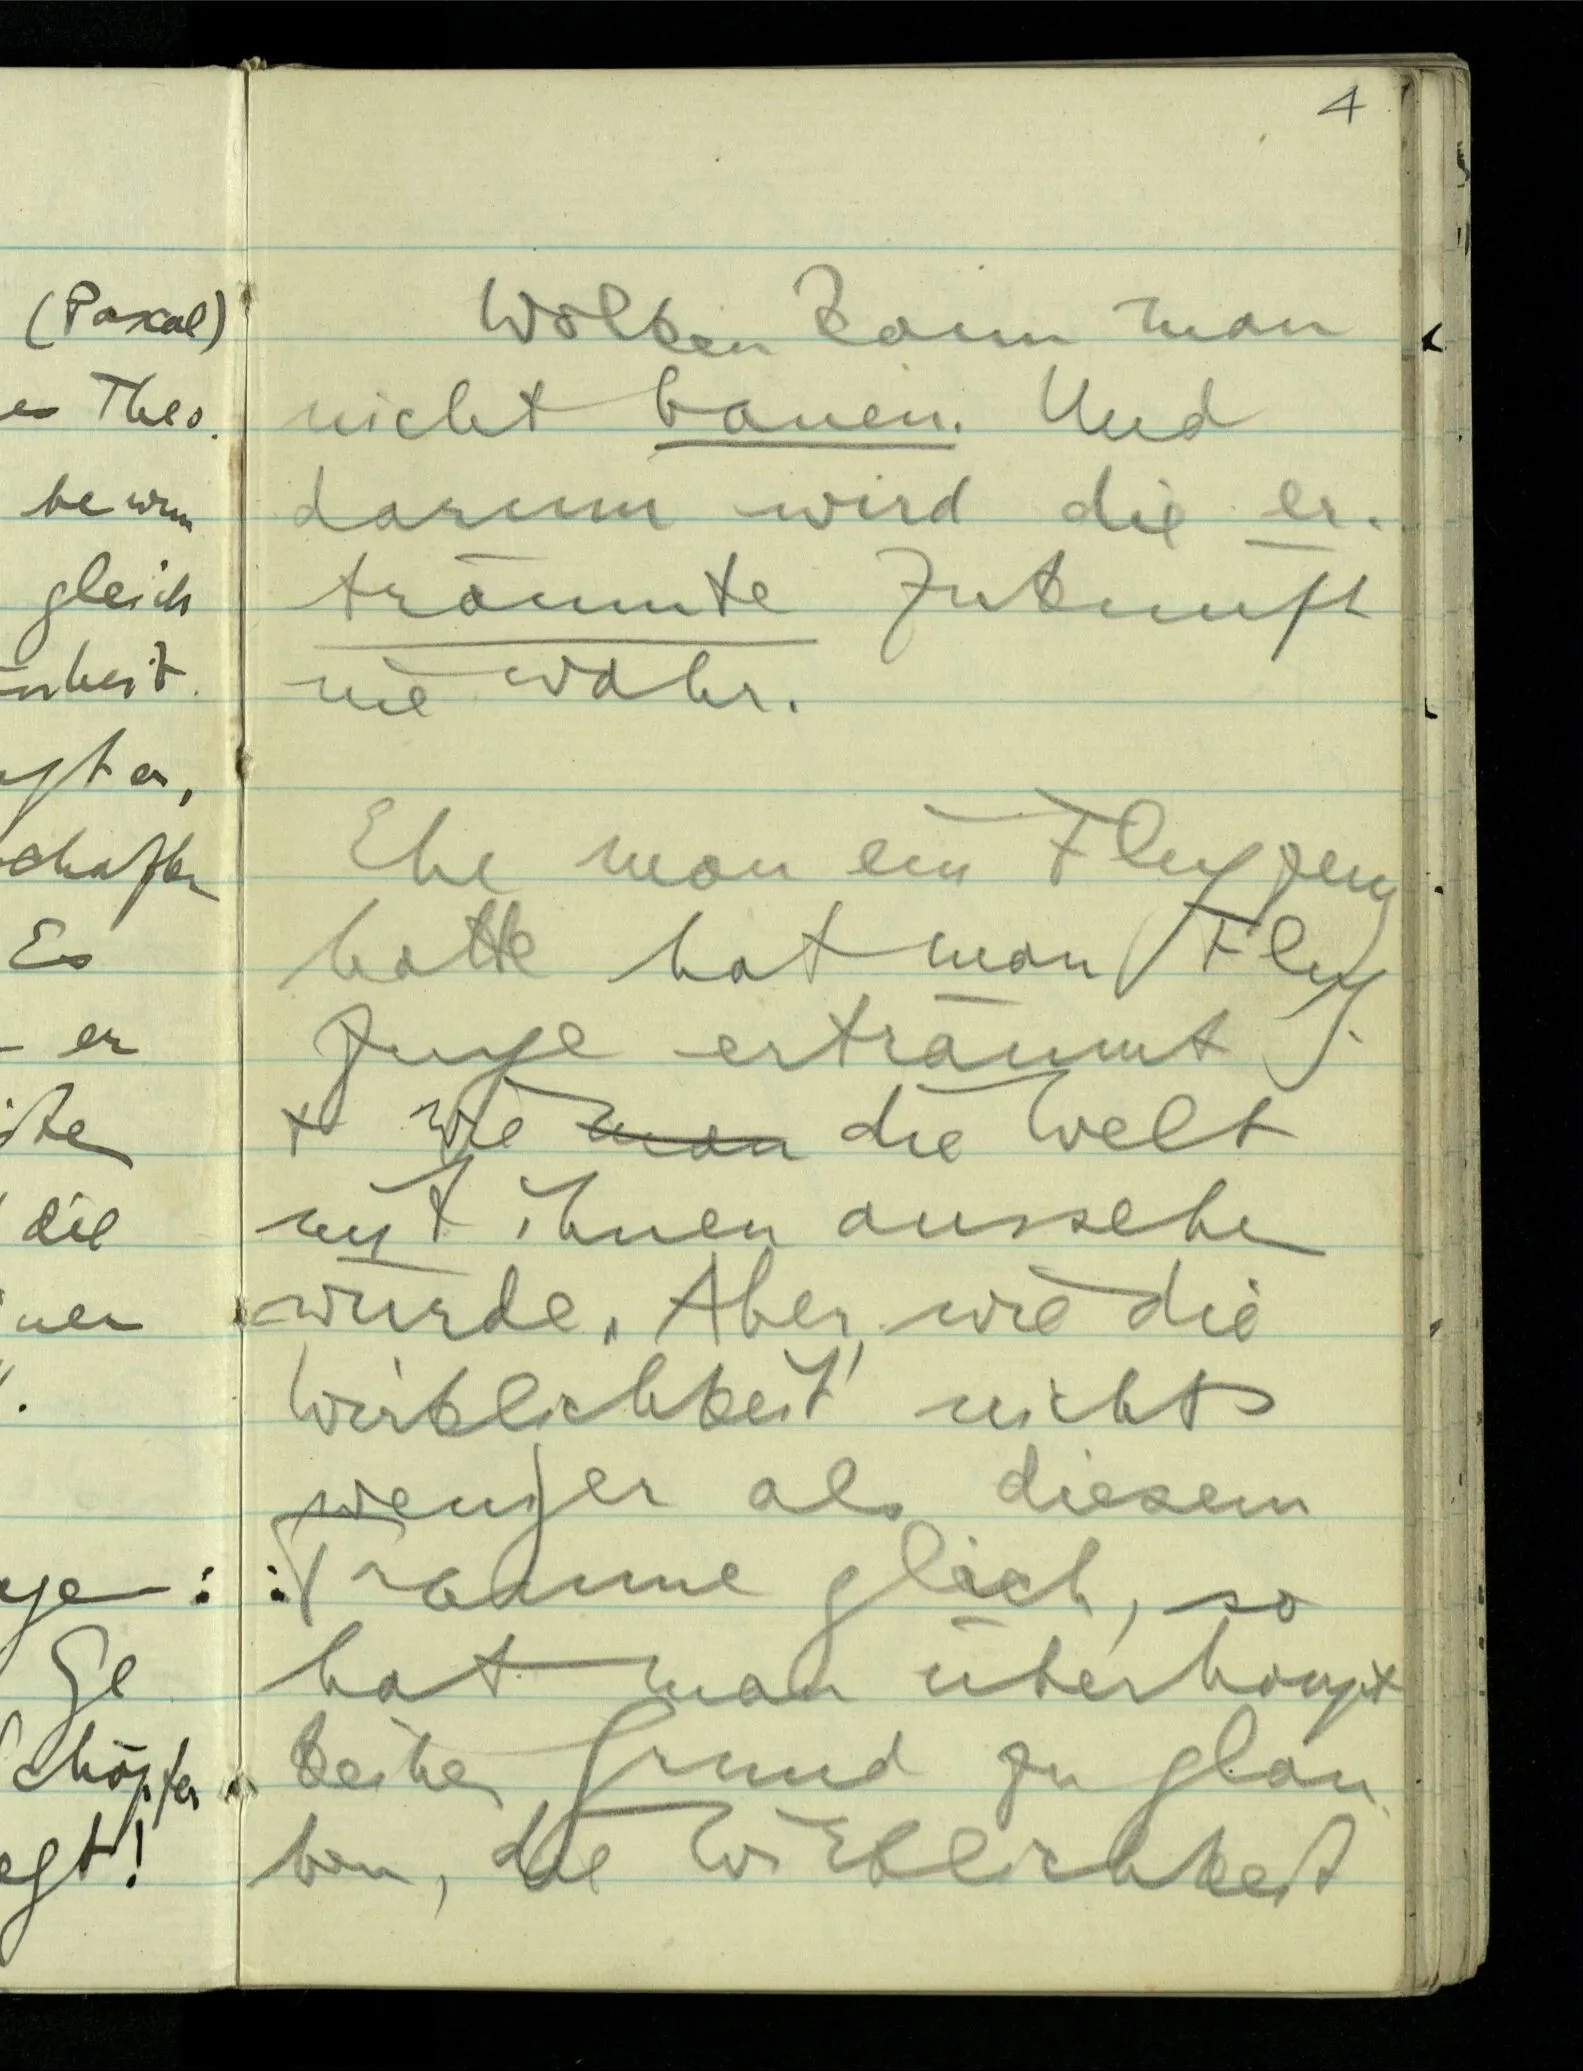 4
(Pascal)
Theo.
bewun
gleich
önheit.
gt er,
schaften
Es
– er
die
nen
Ge
Schöpfer
egt!
Wolken kann man
nicht bauen. Und
darum wird die er-
träumte Zukunft
nie wahr.
Ehe man ein Flugzeug
hatte hat man Flug
zeuge erträumt
+ wie man die Welt
mit ihnen aussehen
würde. Aber, wie die
Wirklichkeit nichts
weniger als diesem
Traume glich, so
hat man überhaupt
keinen Grund zu glau
ben, die Wirklichkeit